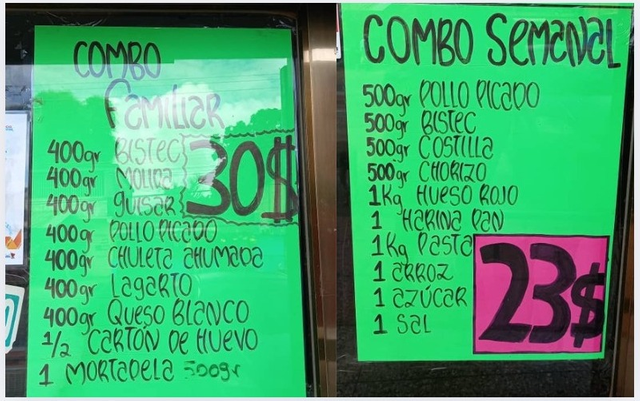 COMBO
FamiLiaR
400gr BISTEC
400gr MOLIDA
400gr guiSAR
30$
400gr POLLO PICADO
400gr CHULETA AHUMADA
400gr LAGARTO
400gr QUESO BLANCO
1/2 CARTÓN DE HUEVO
1 MORTADELA 500gr
COMBO SEMANAL
500gr POLLO PICADO
500gr BISTEC
500gr COSTILLA
500gr CHORIZO
1Kg HUESO ROJO
1 HARINA PAN
1Kg PASTA
1 ARROZ
1 AZÚCAR
1 SAL
23$